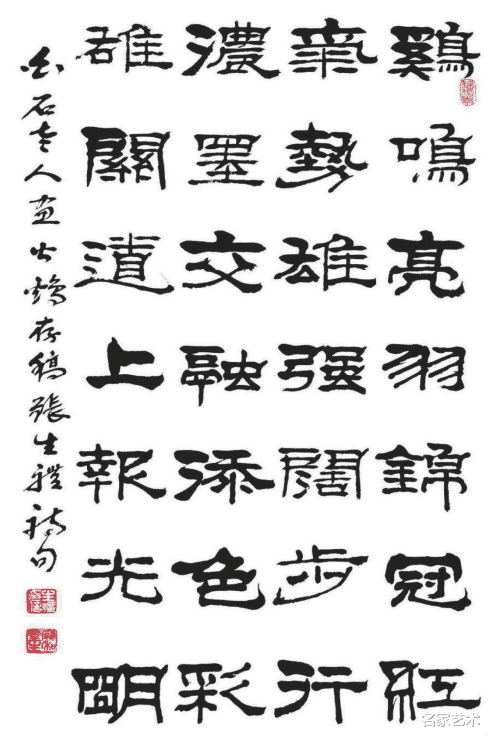 鷄鳴亮羽錦冠紅
氣勢雄强闊步行
濃墨交融添色彩
雄關道上報光明
白石老人畫鷄存稿張生禮詩句
名家艺术